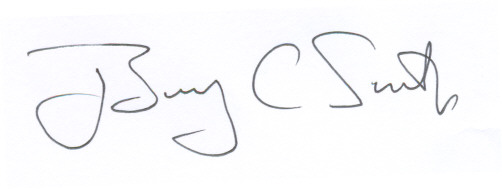 Barry C Smith